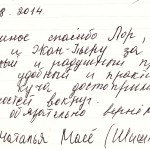 8. 2014.
нное спасибо Лор,
и Жан-Пьеру за
и радушный п
удобный и
уча достоприм
стей вокруг.
бязательно вернё
Наталья Маеё (Шиш